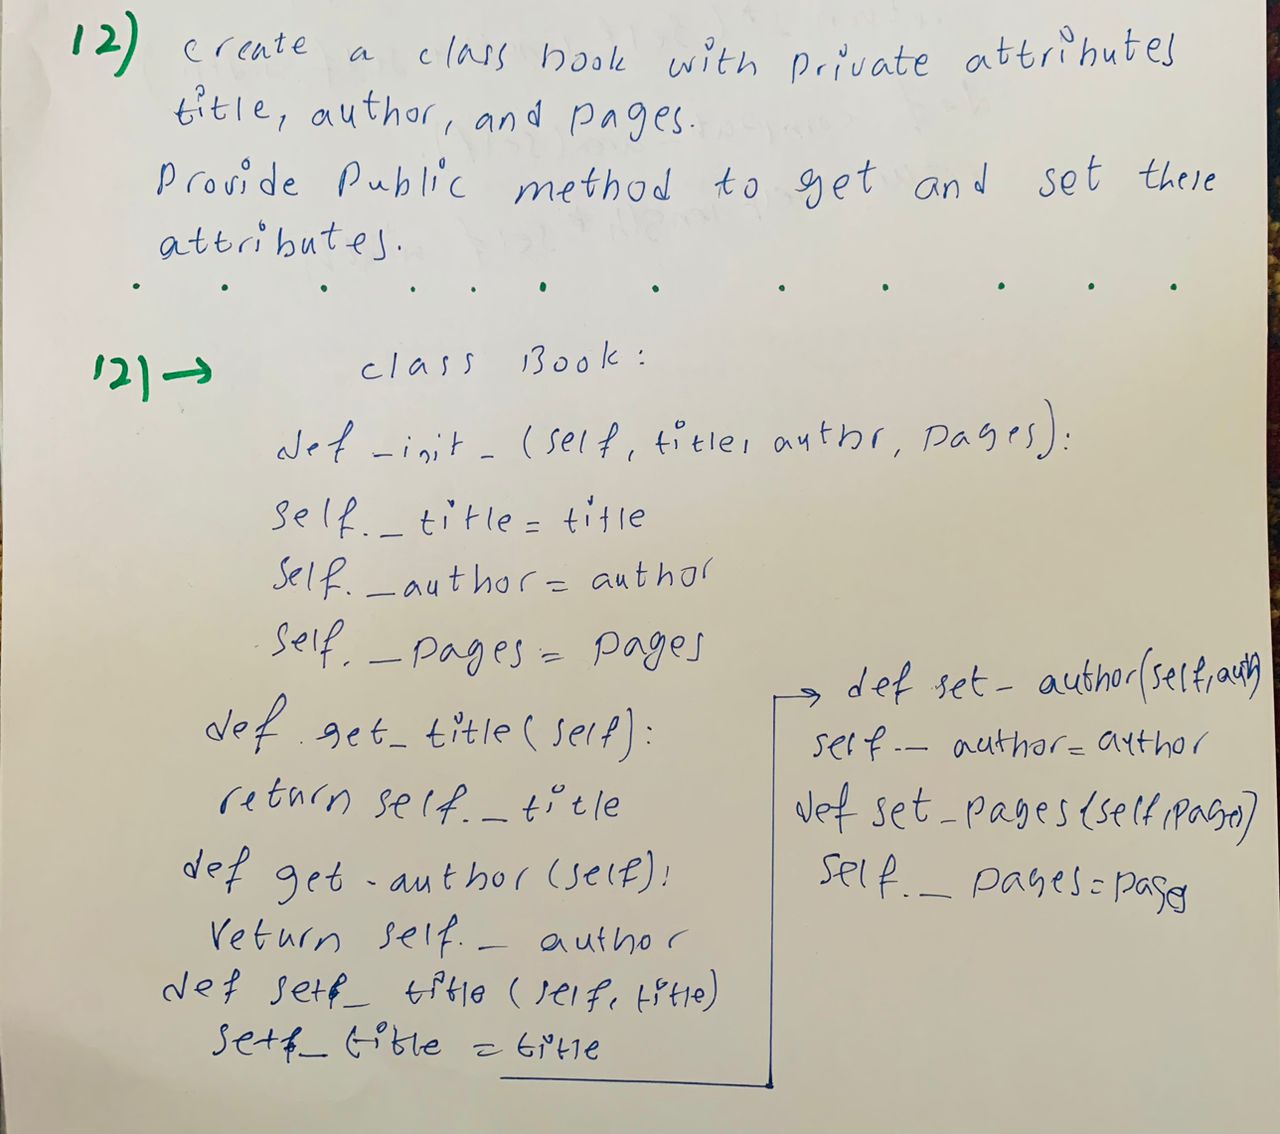 12) create a class book with private attributes
title, author, and pages.
Provide Public method to get and set these
attributes.
12) → class Book:
def _init_ (self, title, authr, pages):
self._title = title
self._author = author
self._pages = pages
def get_title(self):
return self._title
def get_author(self):
return self._author
def set_title (self, title)
set_title = title
→ def set_author(self, auth)
self._author = author
def set_pages(self, pages)
self._pages = page